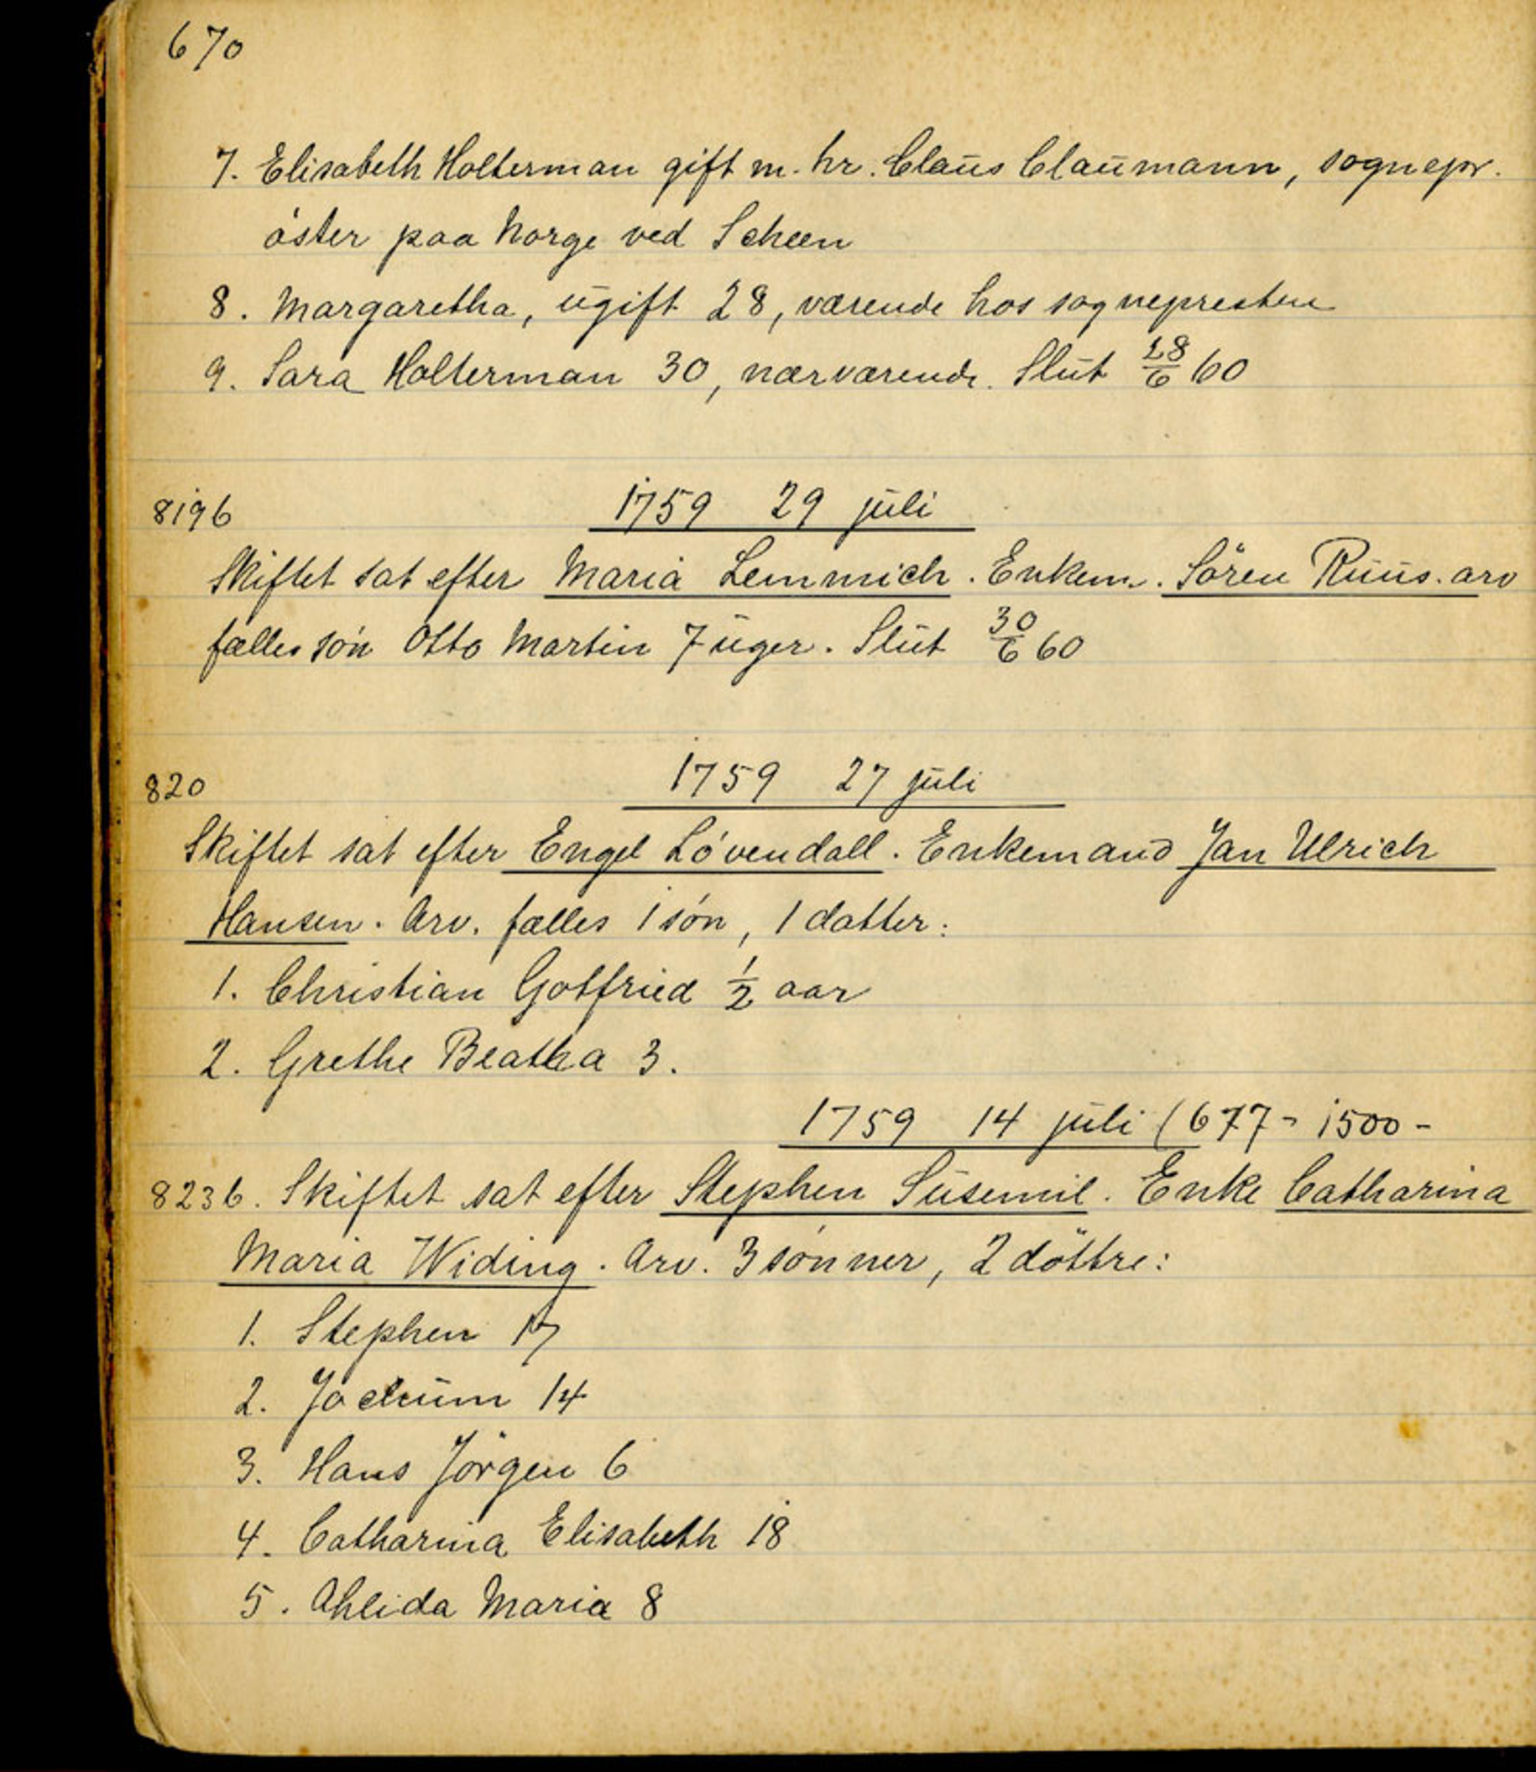 670
7. Elisabeth Holterman gift m. hr. Claus Claumann, sognepr.
öster paa Norge ved Scheen
8. Margaretha, ugift 28, værende hos sognepresten
9. Sara Holterman 30, nærværende. Slut 28/6 60
1759 29 juli
8196
Skiftet sat efter Maria Lemmich. Enkem. Sören Ruus. arv
fælles sön Otto Martin 7 uger. Slut 30/6 60
1759 27 juli
820
Skiftet sat efter Engel Lövendall. Enkemand Jan Ulrich
Hansen. Arv. fælles 1 sön, 1 datter:
1. Christian Gotfried 1/2 aar
2. Grethe Beatha 3.
1759 14 juli (677 - 1500 -
8236. Skiftet sat efter Stephen Susemil. Enke Catharina
Maria Widing. Arv. 3 sönner, 2 döttre:
1. Stephen 17
2. Jochum 14
3. Hans Jörgen 6
4. Catharina Elisabeth 18
5. Ahlida Maria 8